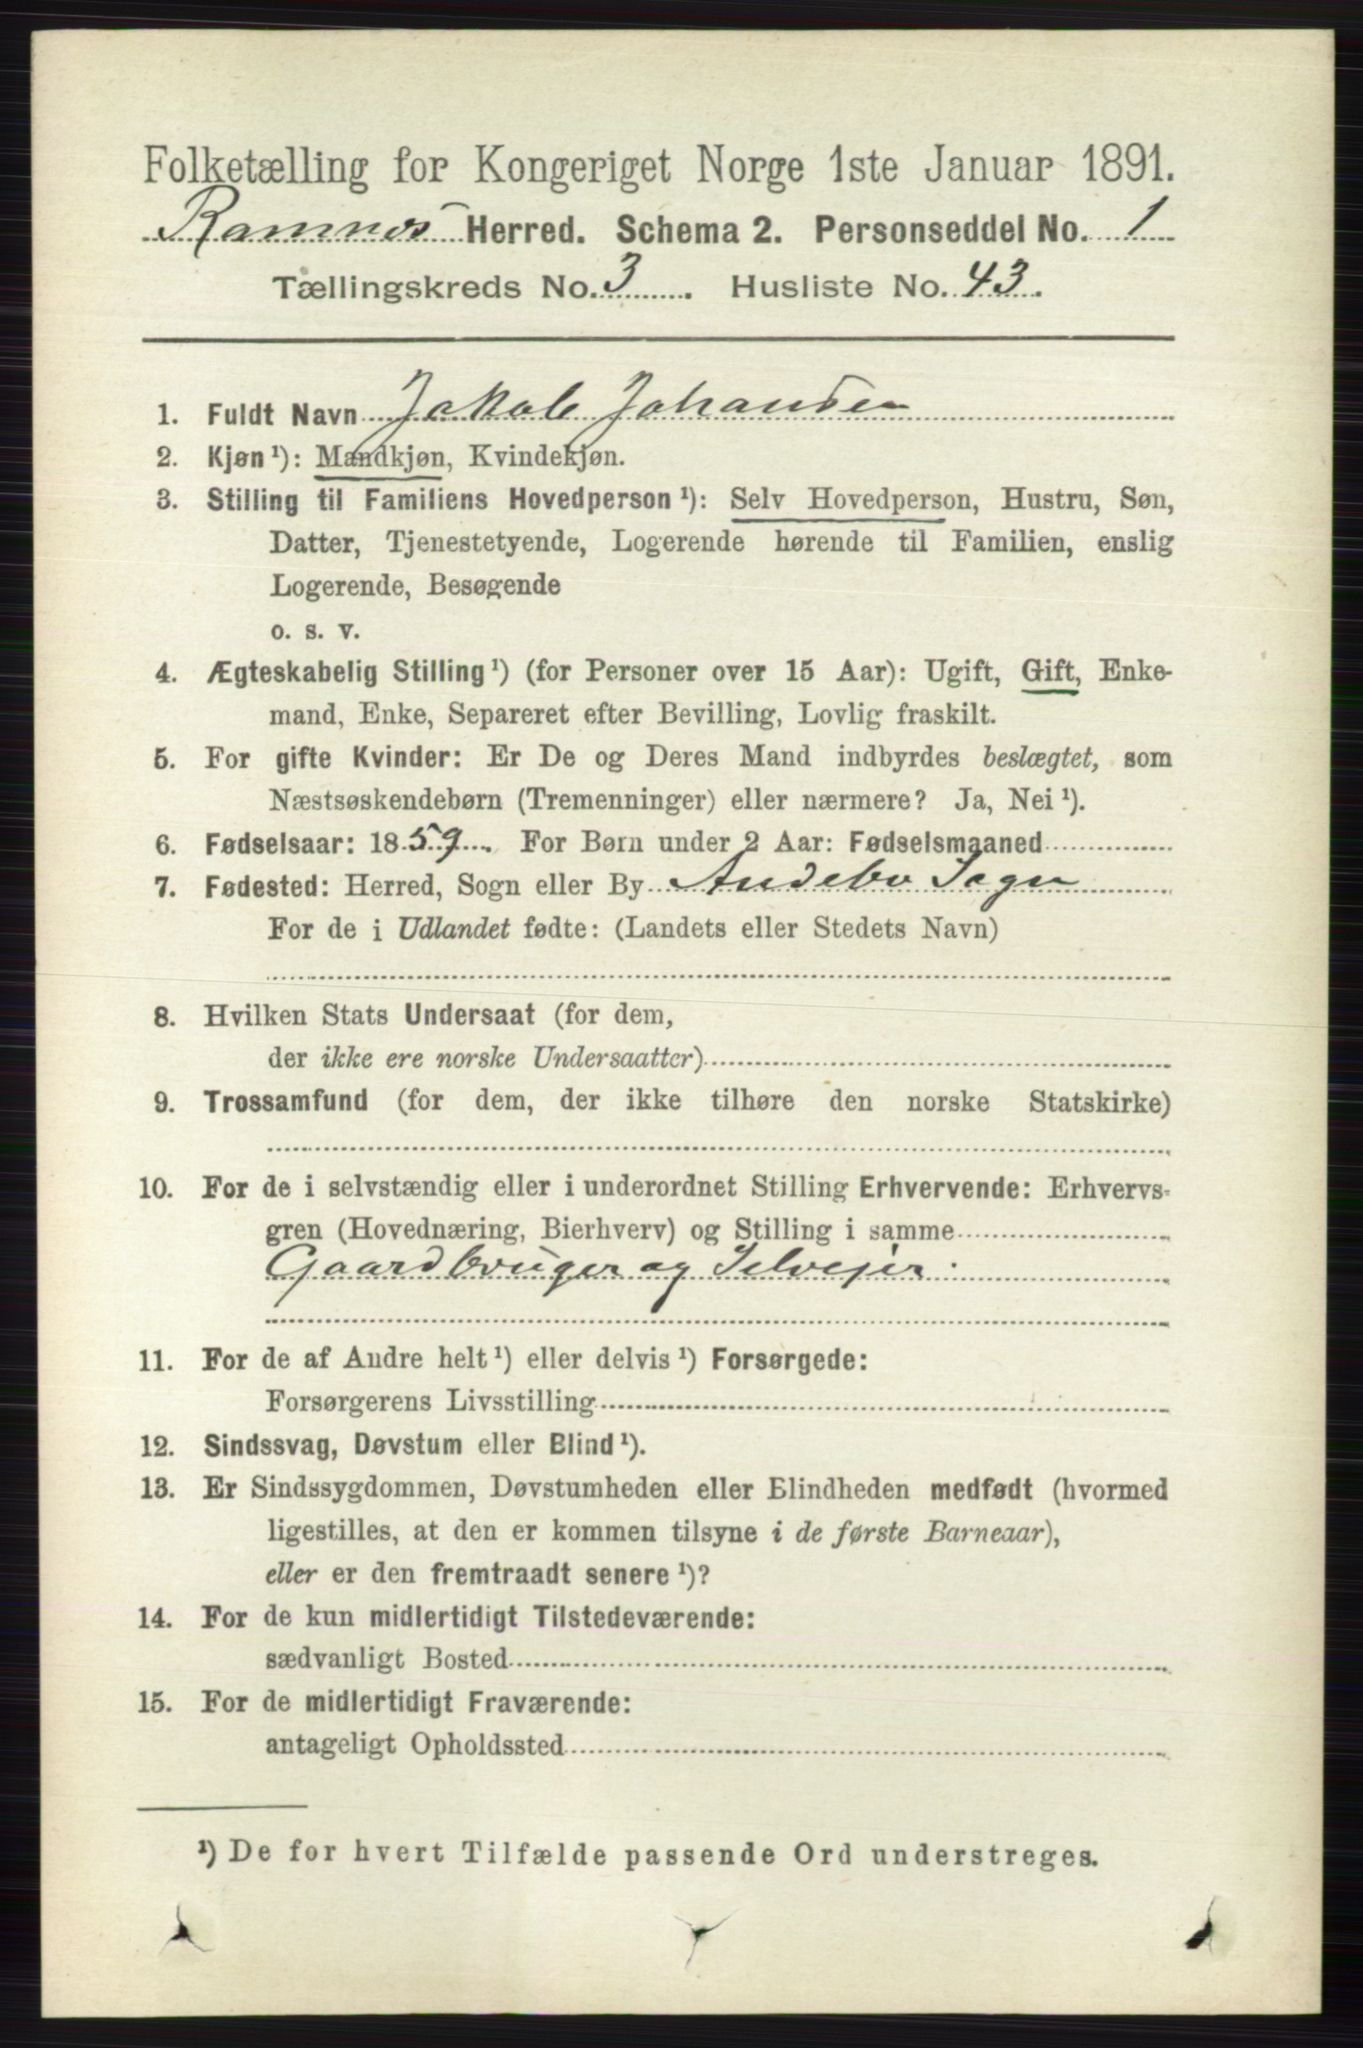 Folketælling for Kongeriget Norge 1ste Januar 1891.
Ramnes Herred. Schema 2. Personseddel No. 1
Tællingskreds No. 3. Husliste No. 43.
1. Fuldt Navn Jakob Johansen
2. Kjøn ¹): Mandkjøn, Kvindekjøn.
3. Stilling til Familiens Hovedperson ¹): Selv Hovedperson, Hustru, Søn,
Datter, Tjenestetyende, Logerende hørende til Familien, enslig
Logerende, Besøgende
o. s. v.
4. Ægteskabelig Stilling ¹) (for Personer over 15 Aar): Ugift, Gift, Enke-
mand, Enke, Separeret efter Bevilling, Lovlig fraskilt.
5. For gifte Kvinder: Er De og Deres Mand indbyrdes beslægtet, som
Næstsøskendebørn (Tremenninger) eller nærmere? Ja, Nei ¹).
6. Fødselsaar: 1859. For Børn under 2 Aar: Fødselsmaaned
7. Fødested: Herred, Sogn eller By Andebo Sogn
For de i Udlandet fødte: (Landets eller Stedets Navn)
8. Hvilken Stats Undersaat (for dem,
der ikke ere norske Undersaatter)
9. Trossamfund (for dem, der ikke tilhøre den norske Statskirke)
10. For de i selvstændig eller i underordnet Stilling Erhvervende: Erhvervs-
gren (Hovednæring, Bierhverv) og Stilling i samme
Gaardbruger og Selvejer.
11. For de af Andre helt ¹) eller delvis ¹) Forsørgede:
Forsørgerens Livsstilling
12. Sindssvag, Døvstum eller Blind ¹).
13. Er Sindssygdommen, Døvstumheden eller Blindheden medfødt (hvormed
ligestilles, at den er kommen tilsyne i de første Barneaar),
eller er den fremtraadt senere ¹)?
14. For de kun midlertidigt Tilstedeværende:
sædvanligt Bosted
15. For de midlertidigt Fraværende:
antageligt Opholdssted
¹) De for hvert Tilfælde passende Ord understreges.